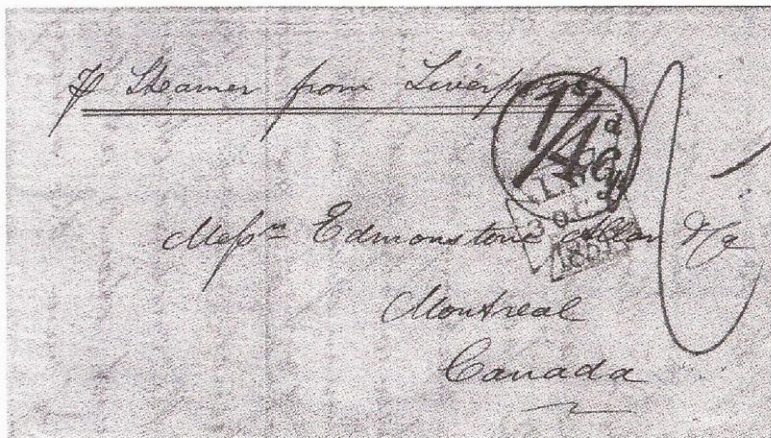 p Steamer from Liverpool
1/4d Cy
Messrs Edmonstone Allan & Co
Montreal
Canada